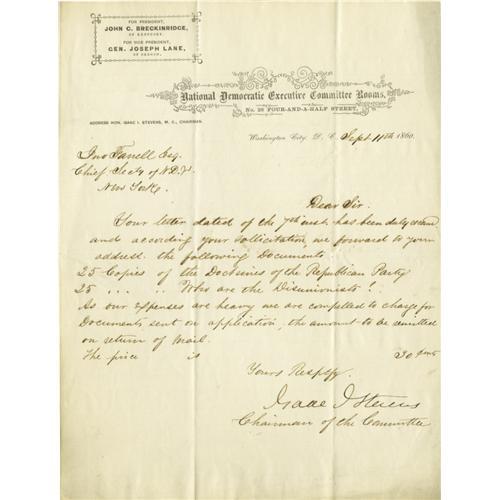 FOR PRESIDENT,
JOHN C. BRECKINRIDGE,
OF KENTUCKY.
FOR VICE PRESIDENT,
GEN. JOSEPH LANE,
OF OREGON.
National Democratic Executive Committee Rooms,
No. 28 FOUR-AND-A-HALF STREET,
ADDRESS HON. ISAAC I. STEVENS, M. C., CHAIRMAN.
Washington City, D. C. Sept 11th 1860.
Jno Farrell Esq.
Chief Secty of N.D.
New York.
Dear Sir.
Your letter dated of the 7th inst. has been duly
and according your sollicitation, we forward to your
address the following Documents
25 Copies of the Doctrines of the Republican Party
25 " " Who are the Disunionists?
As our expenses are heavy we are compelled to charge for
Documents sent on application, the amount to be remitted
on return of mail.
The price is 30 cents
Yours Respy.
Isaac I Stevens
Chairman of the Committee